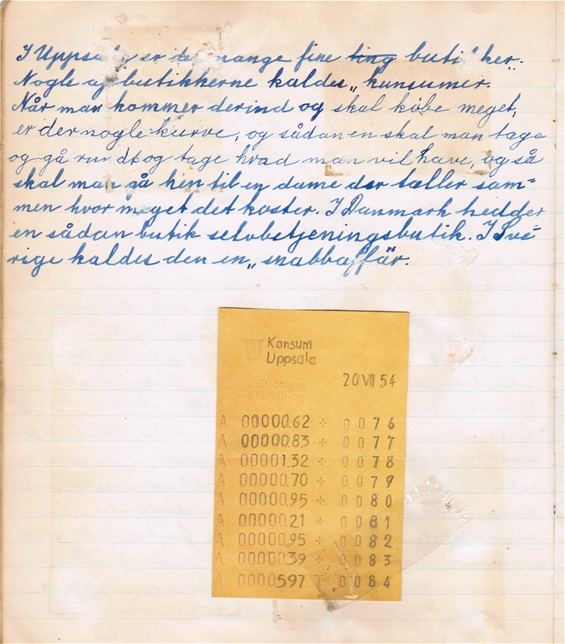 I Uppsala er der mange fine ting buti her.
Nogle af butikkerne kaldes „ kunsumer.
Når man kommer derind og skal købe meget,
er der nogle kurve, og sådan en skal man tage
og gå rundt og tage hvad man vil have, og så
skal man gå hen til en dame der tæller sam=
men hvor meget det koster. I Danmark hedder
en sådan butik selvbetjeningsbutik. I Sve=
rige kaldes den en „ snabbaffär.
Konsum
Uppsala
20 VII 54
A 00000.62 + 0 0 7 6
A 00000.83 + 0 0 7 7
A 00001.32 + 0 0 7 8
A 00000.70 + 0 0 7 9
A 00000.95 + 0 0 8 0
A 00000.21 + 0 0 8 1
A 00000.95 + 0 0 8 2
A 00000.39 + 0 0 8 3
A 00005.97 0 0 8 4